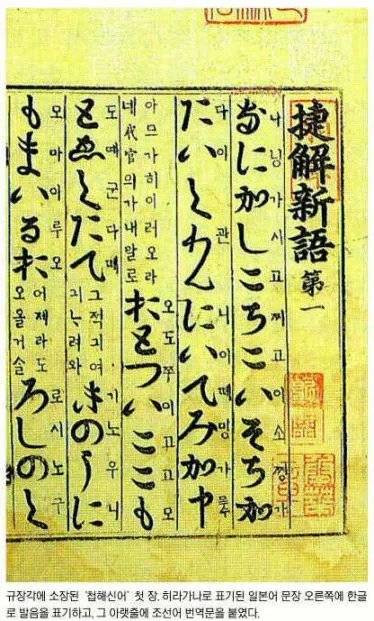 捷解新語 第一
なにかしこちこいそちか
나닝가시고찌고이소찡가
たいくわんにいてみか申
다이관니이떼밍가
아므가히이러오라
네代官의가내말로
おとついここも
오도쭈이고고모
그적긔여
きのうに
기노우니
もまいるお
모마이루오
어제라도
오올거슬
ろしのく
로시노구
규장각에 소장된 '첩해신어' 첫 장. 히라가나로 표기된 일본어 문장 오른쪽에 한글
로 발음을 표기하고, 그 아랫줄에 조선어 번역문을 붙였다.